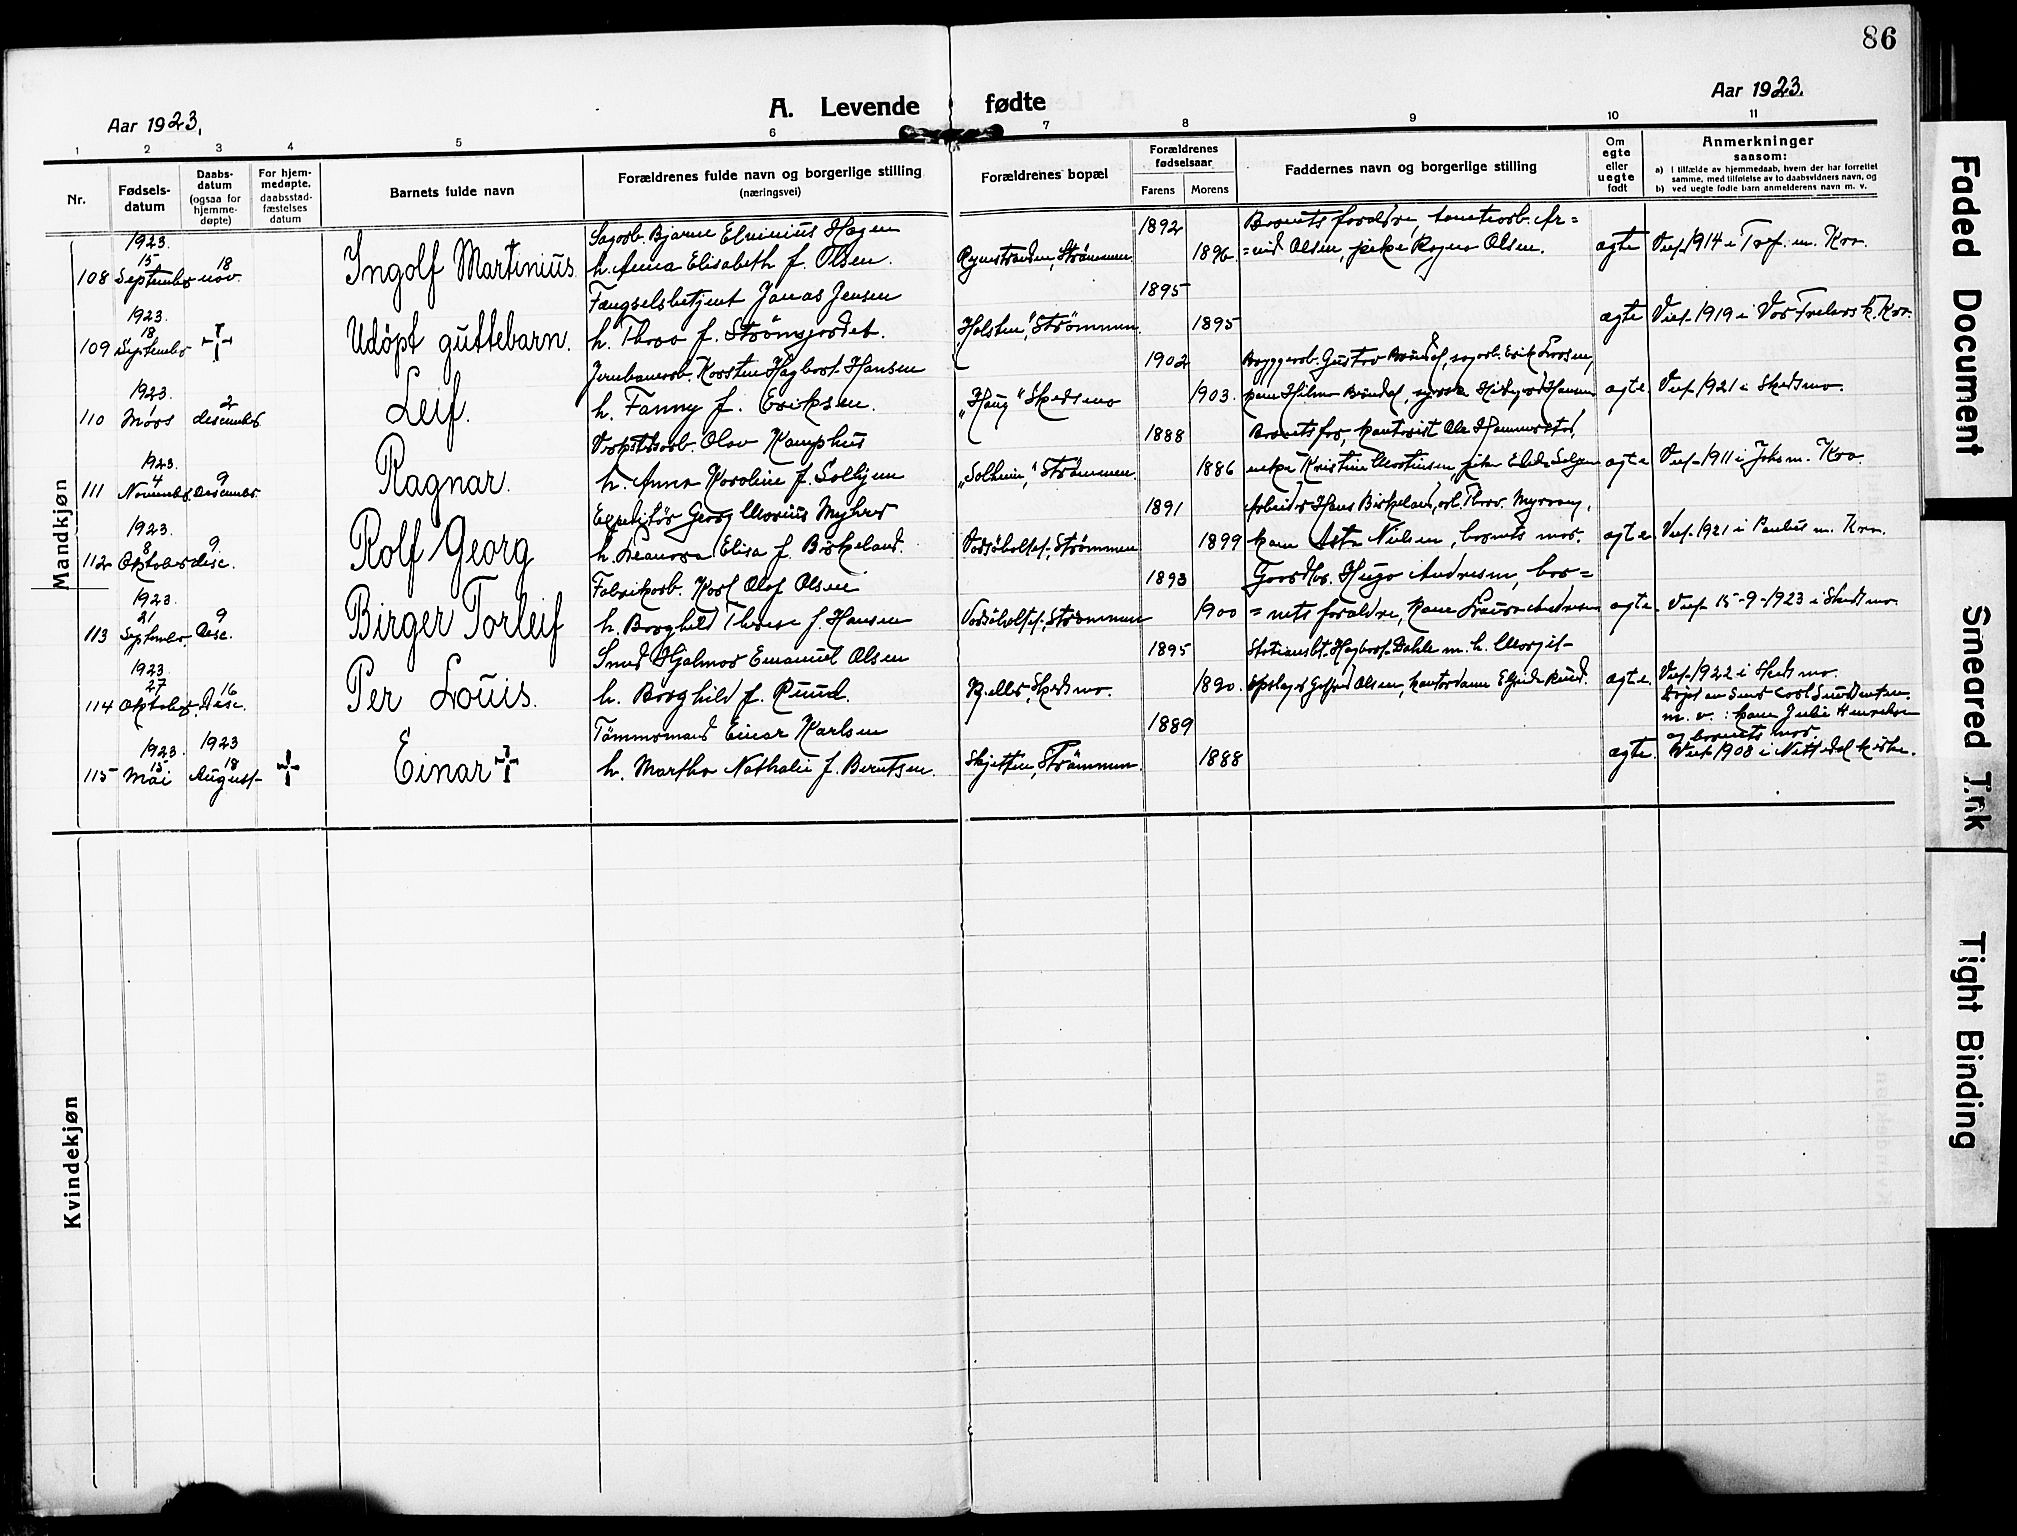 86
Aar 1923.
A. Levende fødte
Aar 1923.
1 2 3 4 5 6 7 8 9 10 11
Nr.
Fødsels-
datum
Daabs-
datum
(ogsaa for
hjemme-
døpte)
For hjem-
medøpte,
daabsstad-
fæstelses
datum
Barnets fulde navn
Forældrenes fulde navn og borgerlige stilling
(næringsvei)
Forældrenes bopæl
Forældrenes
fødselsaar
Farens Morens
Faddernes navn og borgerlige stilling
Om
egte
eller
uegte
født
Anmerkninger
saasom:
a) i tilfælde av hjemmedaab, hvem der har forrettet
samme, med tilføielse av to daabsvidners navn, og
b) ved uegte fødte barn anmelderens navn m. v.
Mandkjøn
1923.
108 15 September 18 nov. Ingolf Martinius
Sagarb. Bjarne Elvinius Hagen
h. Anna Elisabeth f. Olsen.
Strømmen
1892 1896
Barnets forældre, tomtearb. Ar=
=vid Olsen, pike Ragna Olsen.
ægte Viet 1914 i Tref. m. Kra.
1923.
109 18 September Udøpt guttebarn.
Fængselsbetjent Jonas Jensen
h. Thora f. Strømsjordet.
"Holsten", Strømmen.
1895 1895
ægte Viet 1919 i Vor Frelsers k. Kra.
1923.
110 Mars 2 desember Leif.
Jernbanearb. Karsten Hagbart Hansen
h. Fanny f. Eriksen.
"Haug" Skedsmo
1902 1903.
Byggearb. Gustav sagarb. Erik Larsen,
Hansen
ægte. Viet 1921 i Skedsmo.
1923.
111 4 November 9 desember. Ragnar.
Verkstedsarb. Olav Kamphus
h. Anna Karoline f. Solhjem
"Solheim", Strømmen.
1888 1886
Barnets far, kontorist Ole
enke Kristine Martinsen,
ægte Viet 1911 i Joh. m. Kra.
1923.
112 8 Oktober 9 desc. Rolf Georg
Expeditør Georg Marius Myhrer
h. Leanora Elisa f. Birkeland.
Strømmen
1891 1899
Arbeider Hans Birkeland, arb. Thorv. Myrvang,
kone Asta Nielsen, barnets mor.
ægte. Viet 1921 i Paulus m. Kra.
1923
113 21 September 9 Desc. Birger Torleif
Fabrikarb. Karl Olaf Olsen
h. Borghild Therese f. Hansen
Strømmen
1893 1900
Gaardbr. Hugo Andresen, bar=
=nets forældre, kone Laura Andresen
ægte. Viet 15-9-1923 i Skedsmo.
1923
114 27 Oktober 16 Desc. Per Louis.
Smed Hjalmar Emanuel Olsen
h. Borghild f. Ruud.
Kjeller, Skedsmo.
1895 1890.
Stationsbt. Hagbart Dahle m. h. Margit
Olsen, kontordame Elfrida Ruud.
ægte. Viet 1922 i Skedsmo.
1923. 1923
115 15 Mai 18 August Einar
Tømmermand Einar Karlsen
h. Martha Nathalie f. Berntsen.
Skjetten, Strømmen.
1889 1888
ægte.
Døpt av Smed Carl Snedkersen
m. v.: kone Julie Henriksen
og barnets mor.
Viet 1908 i Nittedal kirke.
Kvindekjøn
Faded Document
Smeared Ink
Tight Binding